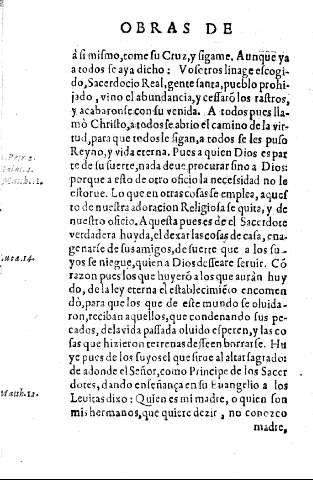 OBRAS DE
à si mismo, tome su Cruz, y sigame. Aunque ya
a todos se aya dicho: Vosotros linage escogi-
do, Sacerdocio Real, gente santa, pueblo prohi-
jado, vino el abundancia, y cessarõ los rastros,
y acabaronse con su venida. A todos pues lla-
mò Christo, a todos se abrio el camino de la vir-
tud, para que todos le sigan, a todos se les puso
Reyno, y vida eterna. Pues a quien Dios es par
te de su suerte, nada deue procurar sino a Dios:
porque a esto de otro oficio la necessidad no le
estorue. Lo que en otras cosas se emplea, aques
to de nuestra adoracion Religiosa se quita, y de
nuestro oficio. Aquesta pues es de el Sacerdote
verdadera huyda, el dexar las cosas de casa, ena-
genarse de sus amigos, de suerte que a los su-
yos se niegue, quien a Dios desseare seruir. Cõ
razon pues los que huyerõ a los que aurãn huy
do, de la ley eterna el establecimiẽto encomen
dò, para que los que de este mundo se oluida-
ron, reciban aquellos, que condenando sus pe-
cados, de la vida passada oluido esperen, y las co
sas que hizieron terrenas desseen borrarse. Hu
ye pues de los suyos el que sirue al altar sagrado:
de adonde el Señor, como Principe de los Sacer
dotes, dando enseñança en su Euangelio a los
Leuitas dixo: Quien es mi madre, o quien son
mis hermanos, que quiere dezir, no conozco
madre,
1. Petr. 2.
Matth. 1.
Luca. 14.
Matth. 12.